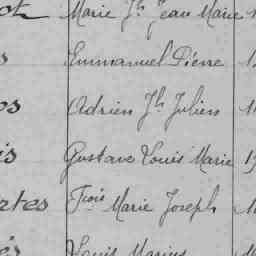 ot Marie Jh Jean Marie
s Emmanuel Pierre 1
os Adrien Jh Julien 1
is Gustave Louis Marie 1
rtes Fçois Marie Joseph 1
és Louis Marius